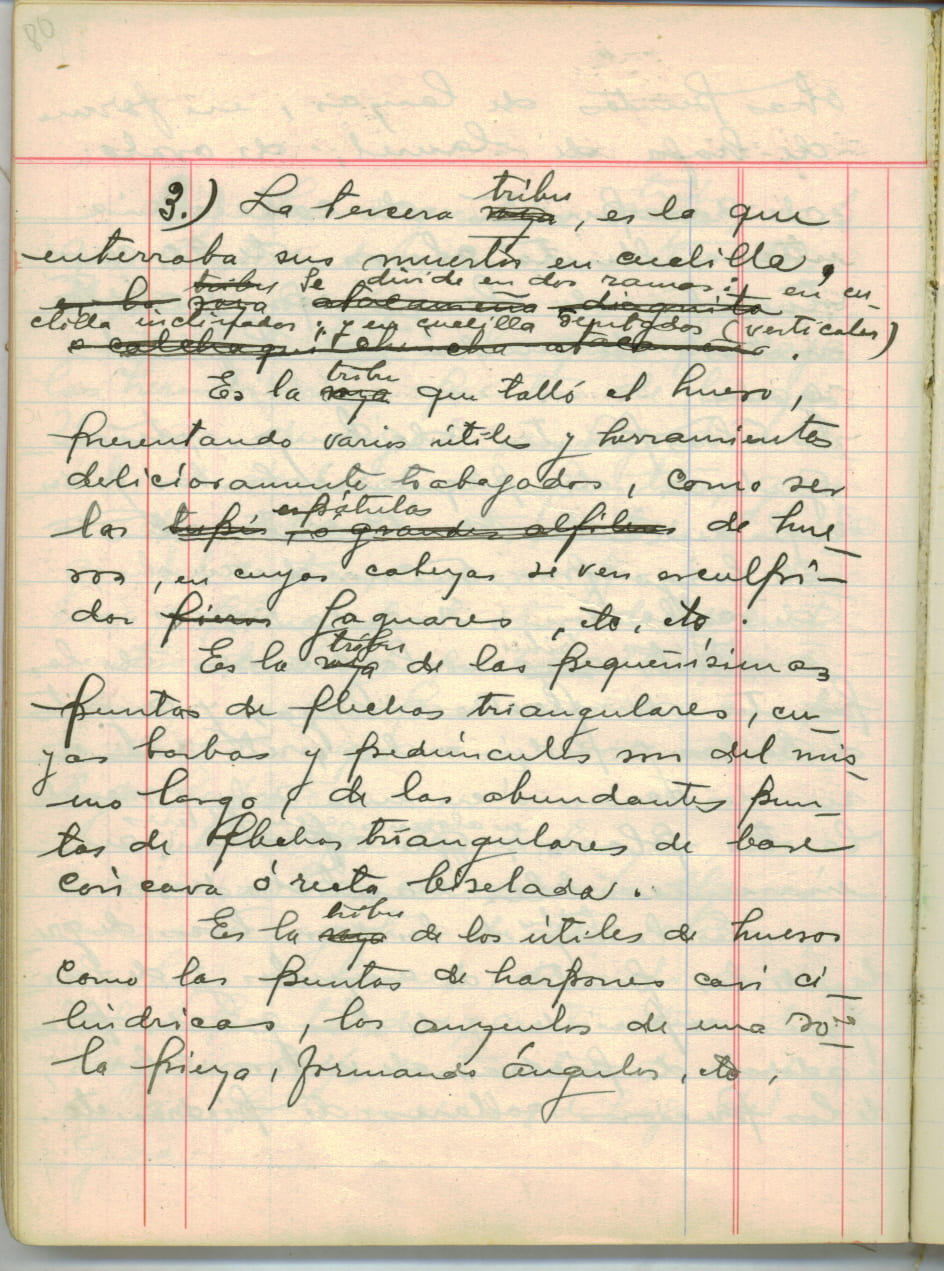 80
3.) La tercera tribu raza, es la que
enterraba sus muertos en cuclilla,
tribu Se divide en dos ramas: en cu-
en la raza atacameña diaguita
clilla inclinados; y en cuclilla sentados (verticales)
o calchaquí chincha atacameño.
tribu
Es la raza que talló el hueso,
presentando varios útiles y herramientas
deliciosamente trabajados, como ser
espátulas
las tupis, o grandes alfileres de hue-
sos, en cuyas cabezas se ven esculpi-
dos fieros Jaguares, etc, etc.
tribu
Es la raza de las pequeñísimas
puntas de flechas triangulares, cu-
yas barbas y pedúnculos son del mis-
mo largo, y de las abundantes pun-
tas de flechas triangulares de base
cóncava ó recta biselada.
tribu
Es la raza de los útiles de huesos
como las puntas de harpones casi ci-
líndricas, los anzuelos de una so-
la pieza, formando ángulos, etc,